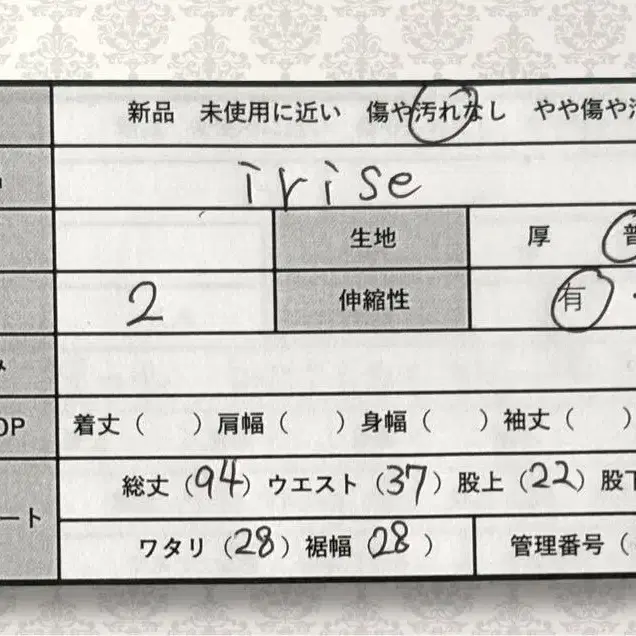 新品 未使用に近い 傷や汚れなし やや傷や汚
irise
生地 厚 普
2 伸縮性 有 ・
OP 着丈（ ）肩幅（ ）身幅（ ）袖丈（ ）
ート 総丈（94）ウエスト（37）股上（22）股下
ワタリ（28）裾幅（28） 管理番号（